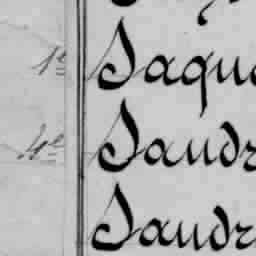 1e Jaqu
4e Jaudr
Jaudr